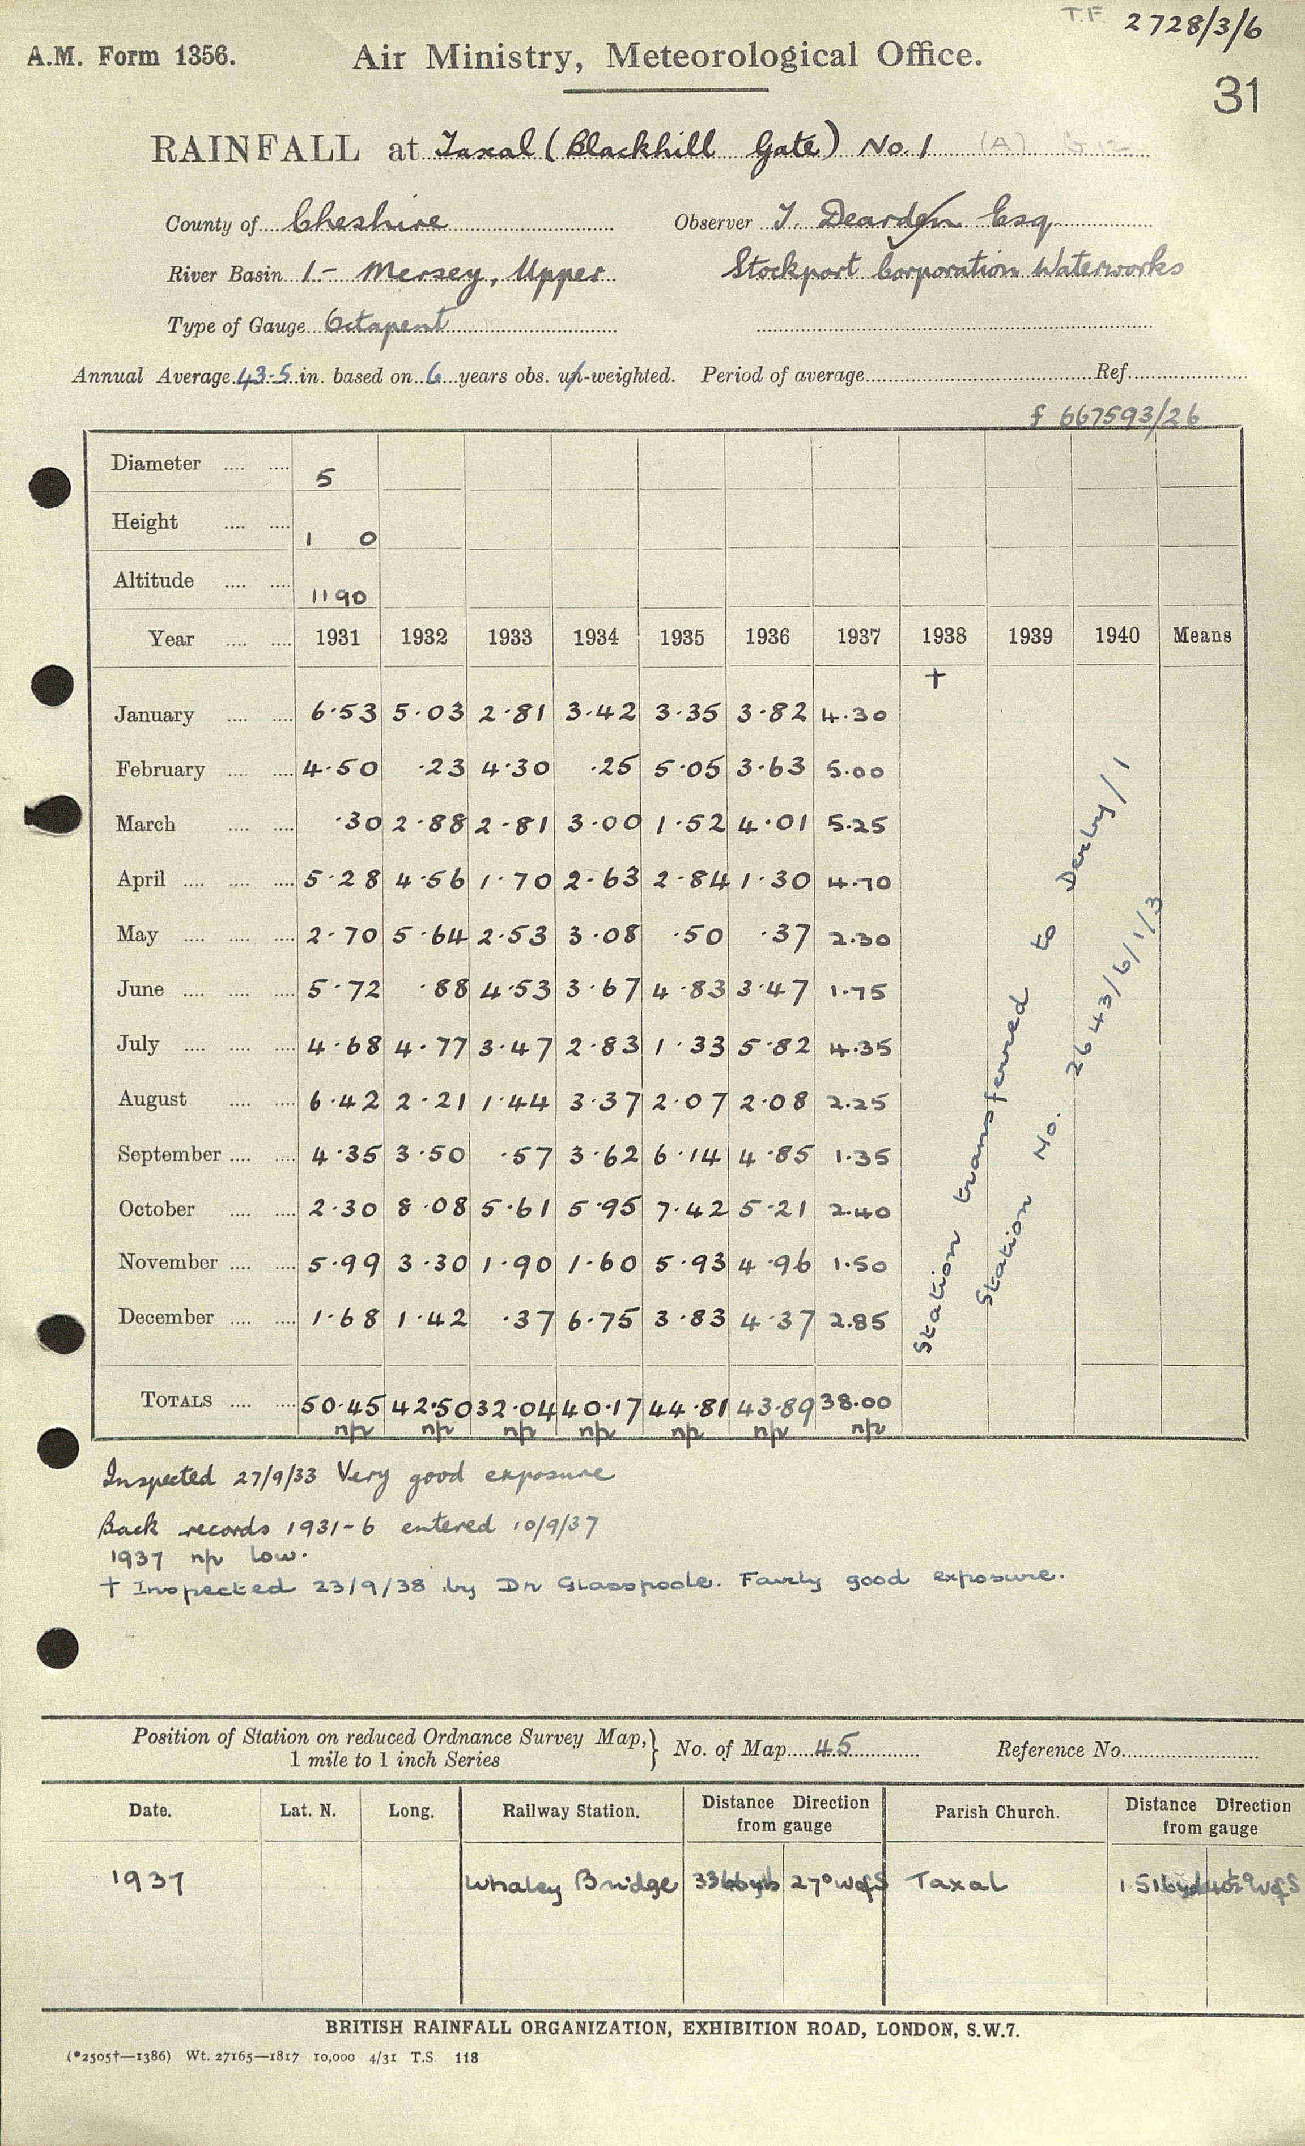 T.F. 2728/3/6
A.M. Form 1356. Air Ministry, Meteorological Office.
31
RAINFALL at Taxal (Blackhill Gate) No. 1 (A)
County of Cheshire Observer T. Dearden Esq
River Basin 1.- Mersey, Upper Stockport Corporation Waterworks
Type of Gauge Octapent
Annual Average 43.5 in. based on 6 years obs. un-weighted. Period of average Ref.
f 667593/26
Diameter 5
Height 1 0
Altitude 1190
Year 1931 1932 1933 1934 1935 1936 1937 1938 1939 1940 Means
†
January 6.53 5.03 2.81 3.42 3.35 3.82 4.30
February 4.50 .23 4.30 .25 5.05 3.63 5.00
March .30 2.88 2.81 3.00 1.52 4.01 5.25
April 5.28 4.56 1.70 2.63 2.84 1.30 4.70
May 2.70 5.64 2.53 3.08 .50 .37 2.30
June 5.72 .88 4.53 3.67 4.83 3.47 1.75
July 4.68 4.77 3.47 2.83 1.33 5.82 4.35
August 6.42 2.21 1.44 3.37 2.07 2.08 2.25
September 4.35 3.50 .57 3.62 6.14 4.85 1.35
October 2.30 8.08 5.61 5.95 7.42 5.21 2.40
November 5.99 3.30 1.90 1.60 5.93 4.96 1.50
December 1.68 1.42 .37 6.75 3.83 4.37 2.85
Totals 50.45 42.50 32.04 40.17 44.81 43.89 38.00
np np np np np np np
Station transferred to Derby/1
Station No. 2643/6/1/3
Inspected 27/9/33 Very good exposure
Back records 1931-6 entered 10/9/37
1937 np low.
† Inspected 23/9/38 by Dr Glasspoole. Fairly good exposure.
Position of Station on reduced Ordnance Survey Map, } No. of Map 45 Reference No.
1 mile to 1 inch Series
Date. Lat. N. Long. Railway Station. Distance Direction from gauge Parish Church. Distance Direction from gauge
1937 Whaley Bridge 27° W of S Taxal W of S
BRITISH RAINFALL ORGANIZATION, EXHIBITION ROAD, LONDON, S.W.7.
(*2505†—1386) Wt. 27165—1817 10,000 4/31 T.S. 118